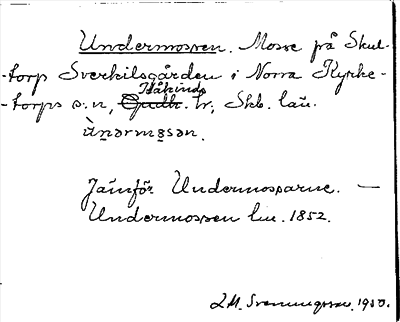 Undermossen. Mosse på Skul-
-torp Sverkilsgården i Norra Kyrke-
-torps s:n, Gudh. Kåkinds hr, Skb. län.
ùnərmɔsən.
Jämför Undermossarne. —
Undermossen lm. 1852.
1950.